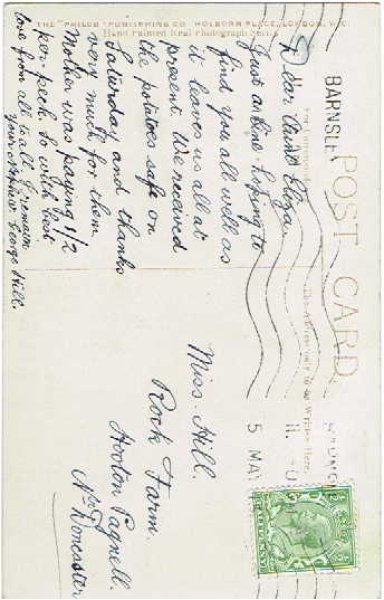 POST CARD
BARNSLEY
5 MAY
THE "PHILCO" PUBLISHING CO HOLBORN PLACE, LONDON, W.C.
Hand Painted Real Photograph
The Address only to be Written Here.
Dear Aunt Eliza.
Just a line. hoping to
find you all well as
it leaves us all at
present. We received
the potatoes safe on
Saturday and thanks
very much for them
Mother was paying 1/2
per peck. So with best
love from all to all I remain
your Nephew George Hill.
Miss. Hill.
Rock Farm.
Hooton Pagnell.
Nr Doncaster
HALFPENNY